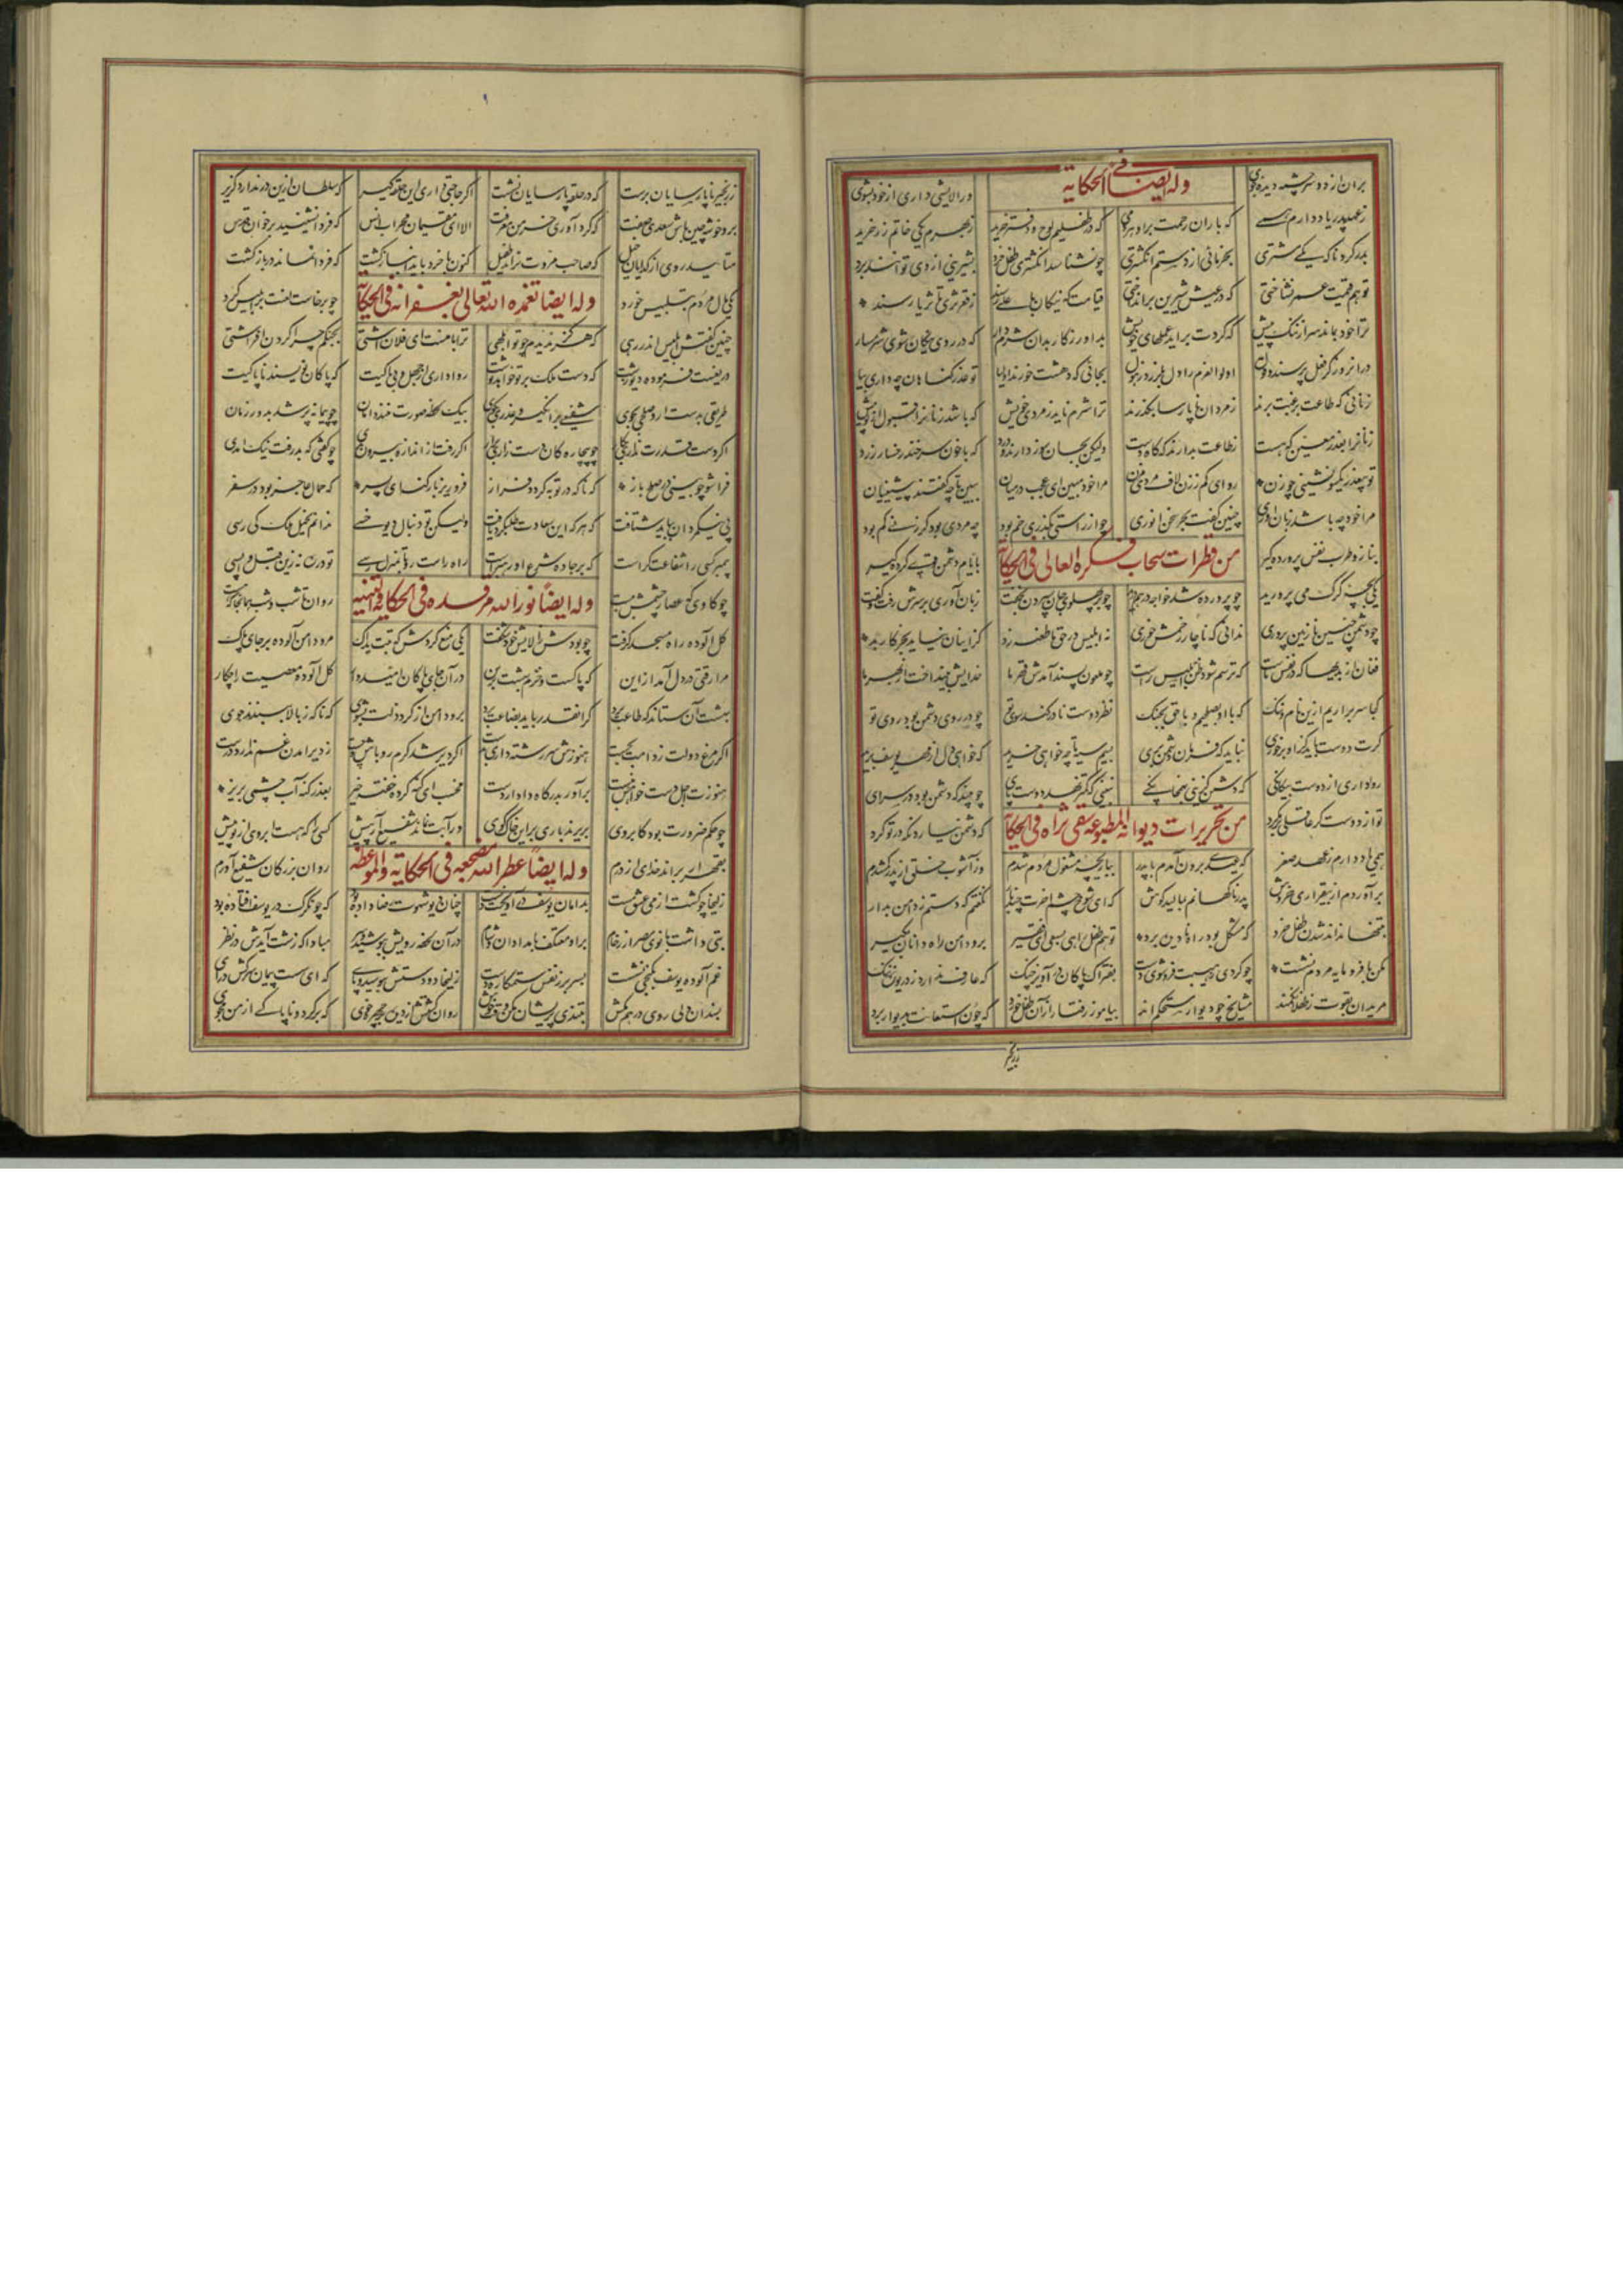 بران از دو سرچشمه دیده جوی
وله ایضا فی الحکایة
ور آلایشی داری از خود بشوی
ز عهد پدر یاد دارم همی که باران رحمت برو هر دمی که در طفلیم لوح و دفتر خرید ز بهرم یکی خاتم زر خرید
بدر کرد ناگه یکی مشتری بخرمائی از دستم انگشتری چو نشناسد انگشتری طفل خرد بشیرینی از وی توانند برد
تو هم قیمت عمر نشناختی که در عیش شیرین برانداختی قیامت که نیکان باعلی رسند ز قعر ثری با ثریا رسند
ترا خود بماند سر از ننگ پیش که گردت براید عملهای خویش برادر ز کار بدان شرم دار که در روی نیکان شوی شرمسار
دران روز کز فعل پرسند و قول اولوالعزم را دل بلرزد ز هول بجائی که دهشت خورند انبیا تو عذر گناهان چه داری بیا
زنانی که طاعت برغبت برند ز مردان ناپارسا بگذرند ترا شرم ناید ز مردی خویش که باشد زنانرا قبول از تو بیش
زنانرا بعذر معین که هست ز طاعت بدارند گه گاه دست
تو بیعذر یکسو نشینی چو زن رو ای کم ز زن لاف مردی مزن مرا خود مبین ای عجب در میان ببین تا چه گفتند پیشینیان
مرا خود چه باشد زبان آوری چنین گفت بحر سخن انوری چو از راستی بگذری خم بود چه مردی بود کز زنی کم بود
بناز و طرب نفس پرورده گیر
من قطرات سحاب فکره العالی فی الحکایة
بایام دشمن قوی کرده گیر
یکی بچه گرگ می پرورید چو پرورده شد خواجه درهم درید چو بر پهلوی جان سپردن بخفت زبان آوری بر سرش رفت و گفت
چو دشمن چنین نازنین پروری ندانی که ناچار زخمش خوری نه ابلیس در حق ما طعنه زد کز اینان نیاید بجز کار بد
فغان از بدیها که در نفس ماست که ترسم شود ظن ابلیس راست چو ملعون پسند آمدش قهر ما خدایش بینداخت از بهر ما
کجا سر براریم ازین نام و ننگ که با او بصلحیم و با حق بجنگ نظر دوست نادر کند سوی تو چو در روی دشمن بود روی تو
گرت دوست باید کزو بر خوری نباید که فرمان دشمن بری بسیم سیه تا چه خواهی خرید که خواهی دل از مهر یوسف برید
روا داری از دوست بیگانگی که دشمن گزینی بهمخانگی نبینی که کمتر نهد دوست پای چو بیند که دشمن بود در سرای
تو از دوست گر عاقلی برمگرد
من تحریرات دیوانه المطبوعة فی الحکایة
که دشمن نیارد نگه در تو کرد
همی یاد دارم ز عهد صغر که عیدی برون آمدم با پدر ببازیچه مشغول مردم شدم وز آشوب خلق از پدر گم شدم
برآوردم از بیقراری خروش پدر ناگهانم بمالید گوش که ای شوخ چشم آخرت چند بار بگفتم که دستم ز دامن مدار
بتنها نداند شدن طفل خرد که مشکل بود راه نادیده برد تو هم طفل راهی بسعی ای فقیر برو دامن راه دانان بگیر
مکن با فرومایه مردم نشست چو کردی ز هیبت فرو شوی دست بفتراک پاکان درآویز چنگ که عارف ندارد ز دریوزه ننگ
مریدان بقوت ز طفلان کمند مشایخ چو دیوار مستحکم اند بیاموز رفتار از آن طفل خرد که چون استعانت بدیوار برد
ز زنجیر ناپارسایان برست که در حلقه پارسایان نشست اگر حاجتی داری این حلقه گیر که سلطان ازین در ندارد گزیر
برو خوشه چین باش سعدی صفت که گرد آوری خرمن معرفت الا ای مقیمان محراب انس که فردا نشینید بر خوان قدس
متابید روی از گدایان خیل که صاحب مروت نراند طفیل کنون با خرد باید انباز گشت که فردا نماند در بازگشت
یکی مال مردم بتلبیس خورد
وله ایضا تغمده الله تعالی بغفرانه فی الحکایة
چو برخاست لعنت بر ابلیس کرد
چنین گفتش ابلیس اندر رهی که هرگز ندیدم چو تو ابلهی ترا با منست ای فلان آشتی بجنگم چرا گردن افراشتی
دریغست فرموده دیو زشت که دست ملک بر تو خواهد نوشت روا داری از جهل و بی باکیت که پاکان نویسند ناپاکیت
طریقی بدست آر و صلحی بجوی شفیعی برانگیز و عذری بگوی که یک لحظه صورت نبندد امان چو پیمانه پر شد بدور زمان
اگر دست قدرت نداری بکار چو بیچارگان دست زاری برآر گرت رفت از اندازه بیرون بدی چو گفتی که بد رفت نیک آمدی
فرا شو چو بینی در صلح باز که ناگه در توبه گردد فراز مرو زیر بار گنه ای پسر که حمال عاجز بود در سفر
پی نیکمردان بباید شتافت که هر که این سعادت طلب کرد یافت ولیکن تو دنبال دیو خسی ندانم بخیل ملک کی رسی
پیمبر کسی را شفاعتگرست که بر جاده شرع او رهبرست راه راست رو تا بمنزل رسی تو در ره نه زین قبل واپسی
چو گاوی که عصار چشمش ببست
وله ایضاً نور الله مرقده فی الحکایة و التنبیه
روان تا شب و شب همانجا که هست
گل آلوده راه مسجد گرفت یکی منع کردش که تبت یداک مرو دامن آلوده بر جای پاک
مرا رقتی در دل آمد ازین که پاکست و خرم بهشت برین در آن جای پاکان امیدوار گل آلوده معصیت را چکار
بهشت آن ستاند که طاعت برد گرا نقد باید بضاعت برد برو دامن از گرد ذلت بشوی که ناگه ز بالا ببندند جوی
اگر مرغ دولت ز دامت بجست هنوزش سر رشته داری بدست اگر دیر شد گرم رو باش و چست ز دیر آمدن غم ندارد درست
هنوزت اجل دست خواهش نبست برآور بدرگاه دادار دست مخسب ای گنه کرده خفته خیز بعذر گنه آب چشمی بریز
چو حکم ضرورت بود کابروی بریزند باری برین خاک کوی ور آبت نماند شفیع آر پیش کسی را که هست آبروی از تو بیش
بقهر ار براند خدای از درم
وله ایضاً عطر الله مضجعه فی الحکایة و الموعظة
روان بزرگان شفیع آورم
زلیخا چو گشت از می عشق مست بدامان یوسف درآویخت دست چنان دیو شهوت رضا داده بود که چون گرگ در یوسف افتاده بود
بتی داشت بانوی مصر از رخام برو معتکف بامدادان و شام در آن لحظه رویش بپوشید و سر مبادا که زشت آیدش در نظر
غم آلوده یوسف بکنجی نشست بسر بر ز نفس ستمکاره دست زلیخا دو دستش ببوسید و پای که ای سست پیمان سرکش درآی
بسندان دلی روی درهم مکش بتندی پریشان مکن وقت خوش روان گشتش از دیده بر چهره جوی که برگرد و ناپاکی از من مجوی